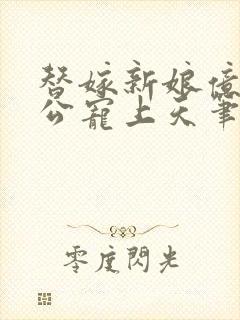 替嫁新娘億
公寵上天筆
零度閃光